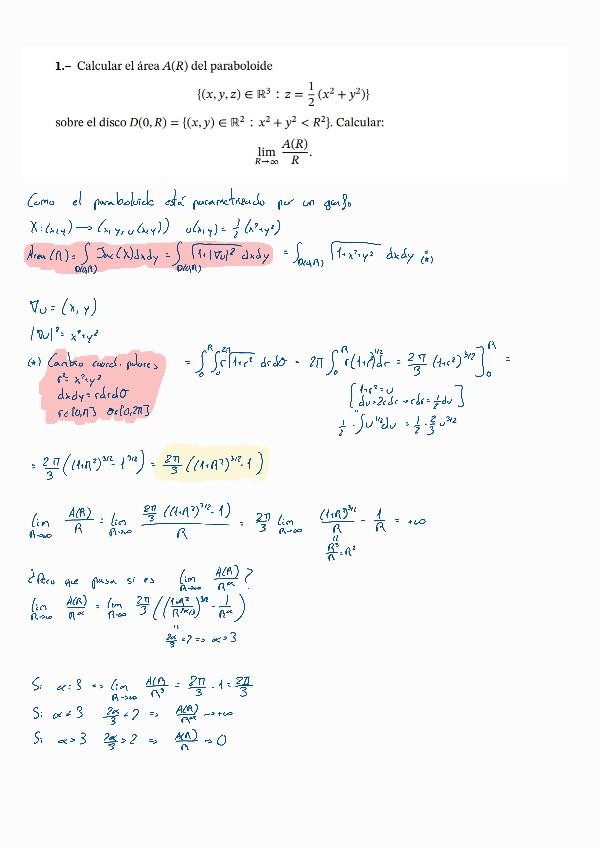 1.– Calcular el área A(R) del paraboloide
{(x, y, z) ∈ ℝ³ : z = 1/2 (x² + y²)}
sobre el disco D(0, R) = {(x, y) ∈ ℝ² : x² + y² < R²}. Calcular:
lim_{R→∞} A(R)/R.
Como el paraboloide está parametrizado por un grafo
X: (x,y) → (x, y, u(x,y)) u(x,y) = 1/2 (x²+y²)
Área(R) = ∫_{D(0,R)} Jac(X)dxdy = ∫_{D(0,R)} √(1+|∇u|²) dxdy = ∫_{D(0,R)} √(1+x²+y²) dxdy (*)
∇u = (x, y)
|∇u|² = x²+y²
(*) Cambio coord. polares = ∫_0^R ∫_0^{2π} r√(1+r²) drdθ = 2π ∫_0^R r(1+r²)^{1/2} dr = 2π/3 (1+r²)^{3/2} ]_0^R =
r² = x²+y²
dxdy = rdrdθ
r∈[0,R] θ∈[0,2π]
[1+r² = u
du = 2rdr → rdr = 1/2 du]
1/2 · ∫u^{1/2}du = 1/2 · 2/3 u^{3/2}
= 2π/3 ((1+R²)^{3/2} - 1^{3/2}) = 2π/3 ((1+R²)^{3/2} - 1)
lim_{R→∞} A(R)/R = lim_{R→∞} 2π/3 ((1+R²)^{3/2} - 1)/R = 2π/3 lim_{R→∞} (1+R²)^{3/2}/R - 1/R = +∞
"
R³/R = R²
¿Pero que pasa si es lim_{R→∞} A(R)/R^α ?
lim_{R→∞} A(R)/R^α = lim_{R→∞} 2π/3 (((1+R²)/R^{2α/3})^{3/2} - 1/R^α)
"
2α/3 = 2 => α = 3
Si α = 3 => lim_{R→∞} A(R)/R³ = 2π/3 · 1 = 2π/3
Si α < 3 2α/3 < 2 => A(R)/R^α → +∞
Si α > 3 2α/3 > 2 => A(R)/R → 0